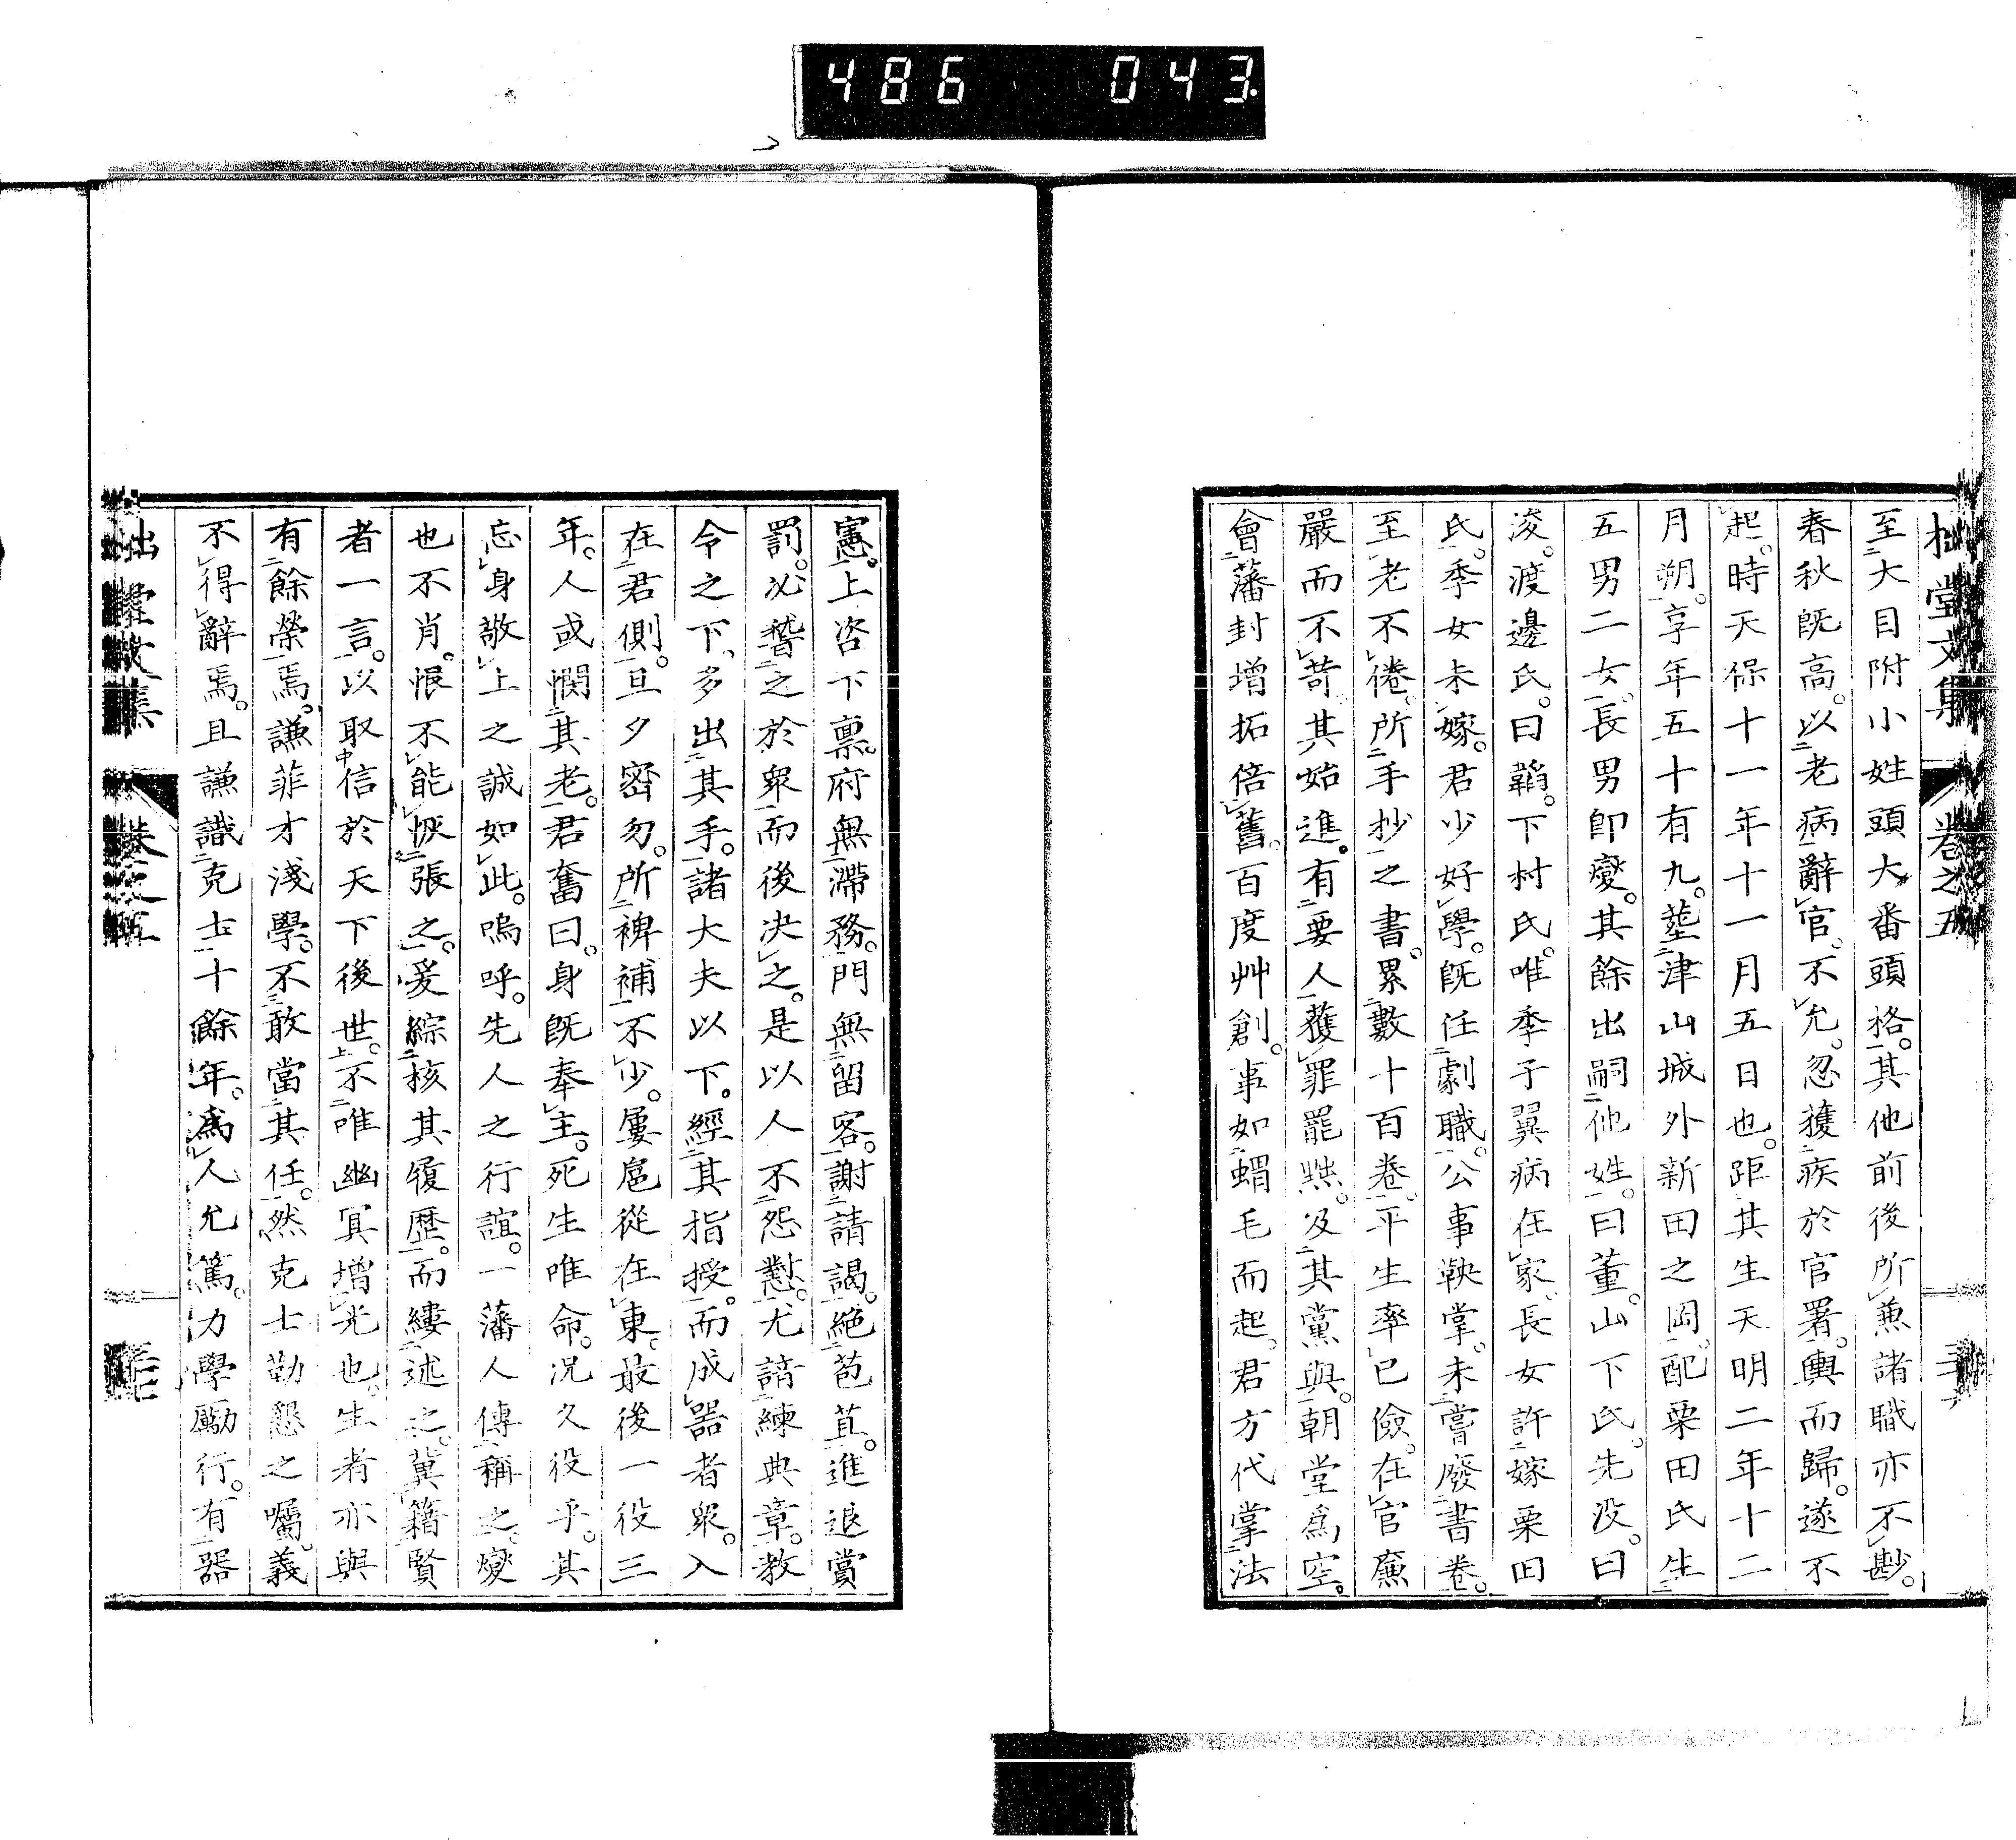 486 043
拙堂文集 卷之五
至大目附小姓頭大番頭格。其他前後所兼諸職亦不尠。
春秋既高。以老病辭官。不允。忽獲疾於官署。輿而歸。遂不
起。時天保十一年十一月五日也。距其生天明二年十二
月朔。享年五十有九。葬津山城外新田之岡。配栗田氏生
五男二女。長男即燮。其餘出嗣他姓。曰董。山下氏。先没。曰
浚。渡邊氏。曰韜。下村氏。唯季子翼病在家。長女許嫁栗田
氏。季女未嫁。君少好學。既任劇職。公事鞅掌。未嘗廢書卷。
至老不倦。所手抄之書。累數十百卷。平生率己儉。在官廉
嚴而不苛。其始進。有要人獲罪罷黜。及其黨與。朝堂爲空。
會藩封增拓倍舊。百度艸創。事如蝟毛而起。君方代掌法
憲。上咨下稟。府無滯務。門無留客。謝請謁。絕苞苴。進退賞
罰。必嵇之於衆而後決之。是以人不怨懟。尤諳練典章。教
令之下、多出其手。諸大夫以下。經其指授。而成器者衆。入
在君側。旦夕密勿。所裨補不少。屢扈從在東。最後一役三
年。人或憫其老。君奮曰。身既奉主。死生唯命。況久役乎。其
忘身敬上之誠如此。嗚呼。先人之行誼。一藩人傳稱之。燮
也不肖。恨不能恢張之。爰綜核其履歴。而縷述之。冀籍賢
者一言。以取信於天下後世。不唯幽冥增光也。生者亦與
有餘榮焉。謙菲才淺學。不敢當其任。然克士勤懇之囑。義
不得辭焉。且謙識克士十餘年。爲人允篤。力學勵行。有器
拙堂文集 卷之五